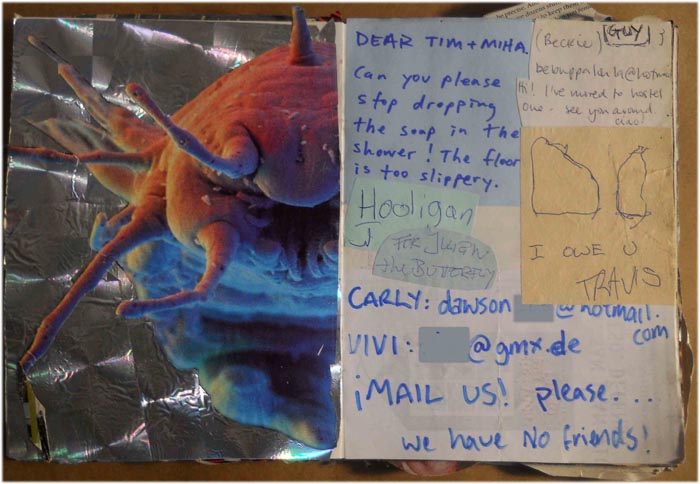 DEAR TIM + MIHA.
Can you please
stop dropping
the soap in the
shower! The floor
is too slippery.
(Beckie) GUY
Hi! I've moved to hostel
one - see you around
ciao!
Hooligan
FOR
the BUTTERFLY
I OWE U
TRAVIS
CARLY: dawson @hotmail.
com
VIVI: @gmx.de
¡MAIL US! please...
we have NO friends!